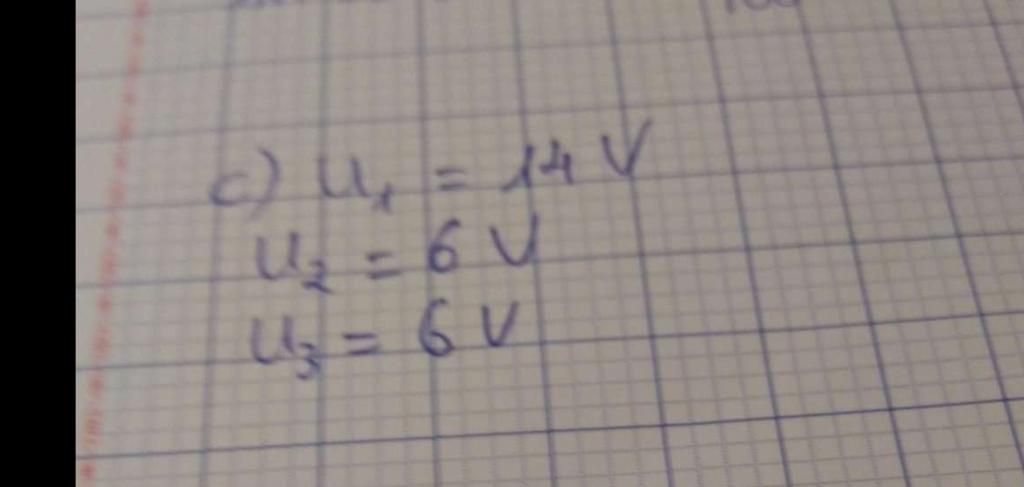 c) U₁ = 14 V
U₂ = 6 V
U₃ = 6 V